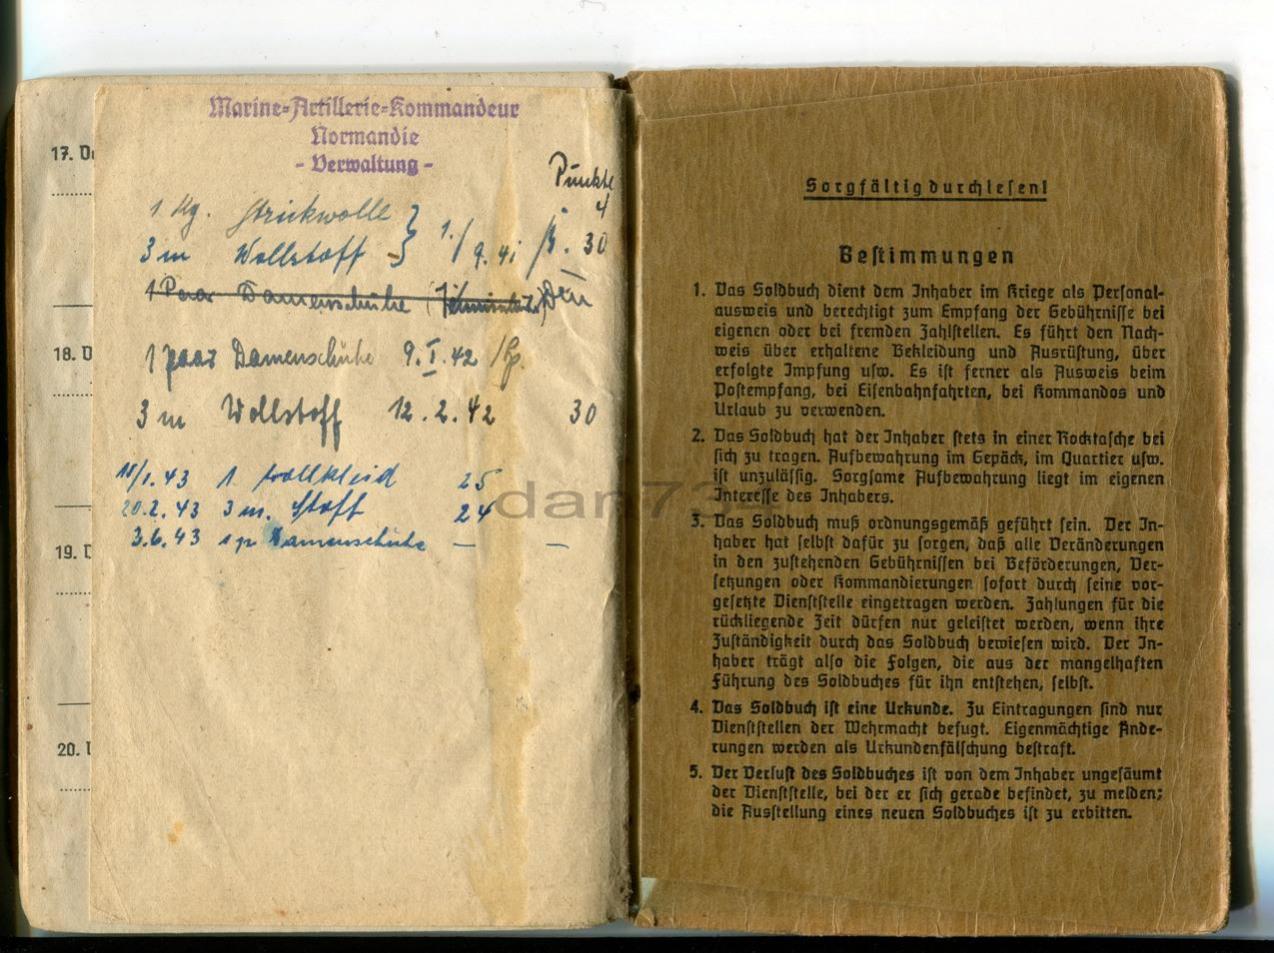 17. D
18. D
19. D
20.
Marine-Artillerie-Kommandeur
Normandie
- Verwaltung -
Punkte
1 Kg. Strickwolle } 4
3 m Wollstoff } 1./9.41 30
1 Paar Damenschuhe
1 paar Damenschuhe 9.I.42
3 m Wollstoff 12.2.42 30
18/1.43 1 Wollkleid 25
20.2.43 3 m. Stoff 24
3.6.43 1 p Damenschuhe — —
dan734
Sorgfältig durchlesen!
Bestimmungen
1. Das Soldbuch dient dem Inhaber im Kriege als Personal-
ausweis und berechtigt zum Empfang der Gebührnisse bei
eigenen oder bei fremden Zahlstellen. Es führt den Nach-
weis über erhaltene Bekleidung und Ausrüstung, über
erfolgte Impfung usw. Es ist ferner als Ausweis beim
Postempfang, bei Eisenbahnfahrten, bei Kommandos und
Urlaub zu verwenden.
2. Das Soldbuch hat der Inhaber stets in einer Rocktasche bei
sich zu tragen. Aufbewahrung im Gepäck, im Quartier usw.
ist unzulässig. Sorgsame Aufbewahrung liegt im eigenen
Interesse des Inhabers.
3. Das Soldbuch muß ordnungsgemäß geführt sein. Der In-
haber hat selbst dafür zu sorgen, daß alle Veränderungen
in den zustehenden Gebührnissen bei Beförderungen, Ver-
setzungen oder Kommandierungen sofort durch seine vor-
gesetzte Dienststelle eingetragen werden. Zahlungen für die
rückliegende Zeit dürfen nur geleistet werden, wenn ihre
Zuständigkeit durch das Soldbuch bewiesen wird. Der In-
haber trägt also die Folgen, die aus der mangelhaften
Führung des Soldbuches für ihn entstehen, selbst.
4. Das Soldbuch ist eine Urkunde. Zu Eintragungen sind nur
Dienststellen der Wehrmacht befugt. Eigenmächtige Ände-
rungen werden als Urkundenfälschung bestraft.
5. Der Verlust des Soldbuches ist von dem Inhaber ungesäumt
der Dienststelle, bei der er sich gerade befindet, zu melden;
die Ausstellung eines neuen Soldbuches ist zu erbitten.